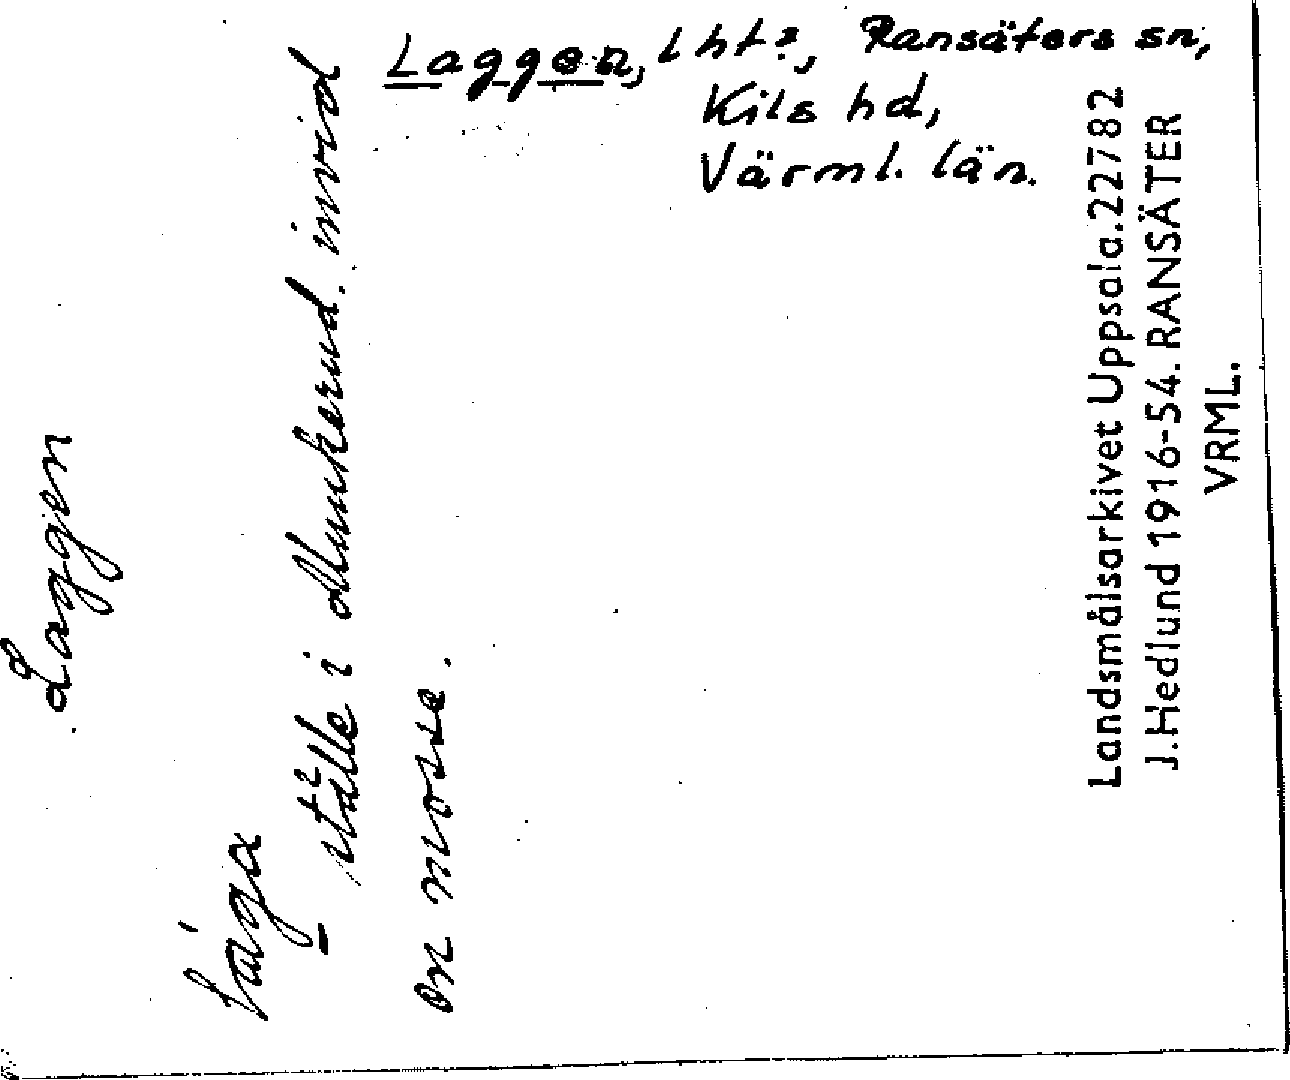 Laggen, lht?, Ransäters sn,
Kils hd,
Värml. län.
Laggen
ställe i Munkerud invid
en mosse.
Landsmålsarkivet Uppsala.22782
J.Hedlund 1916-54. RANSÄTER
VRML.